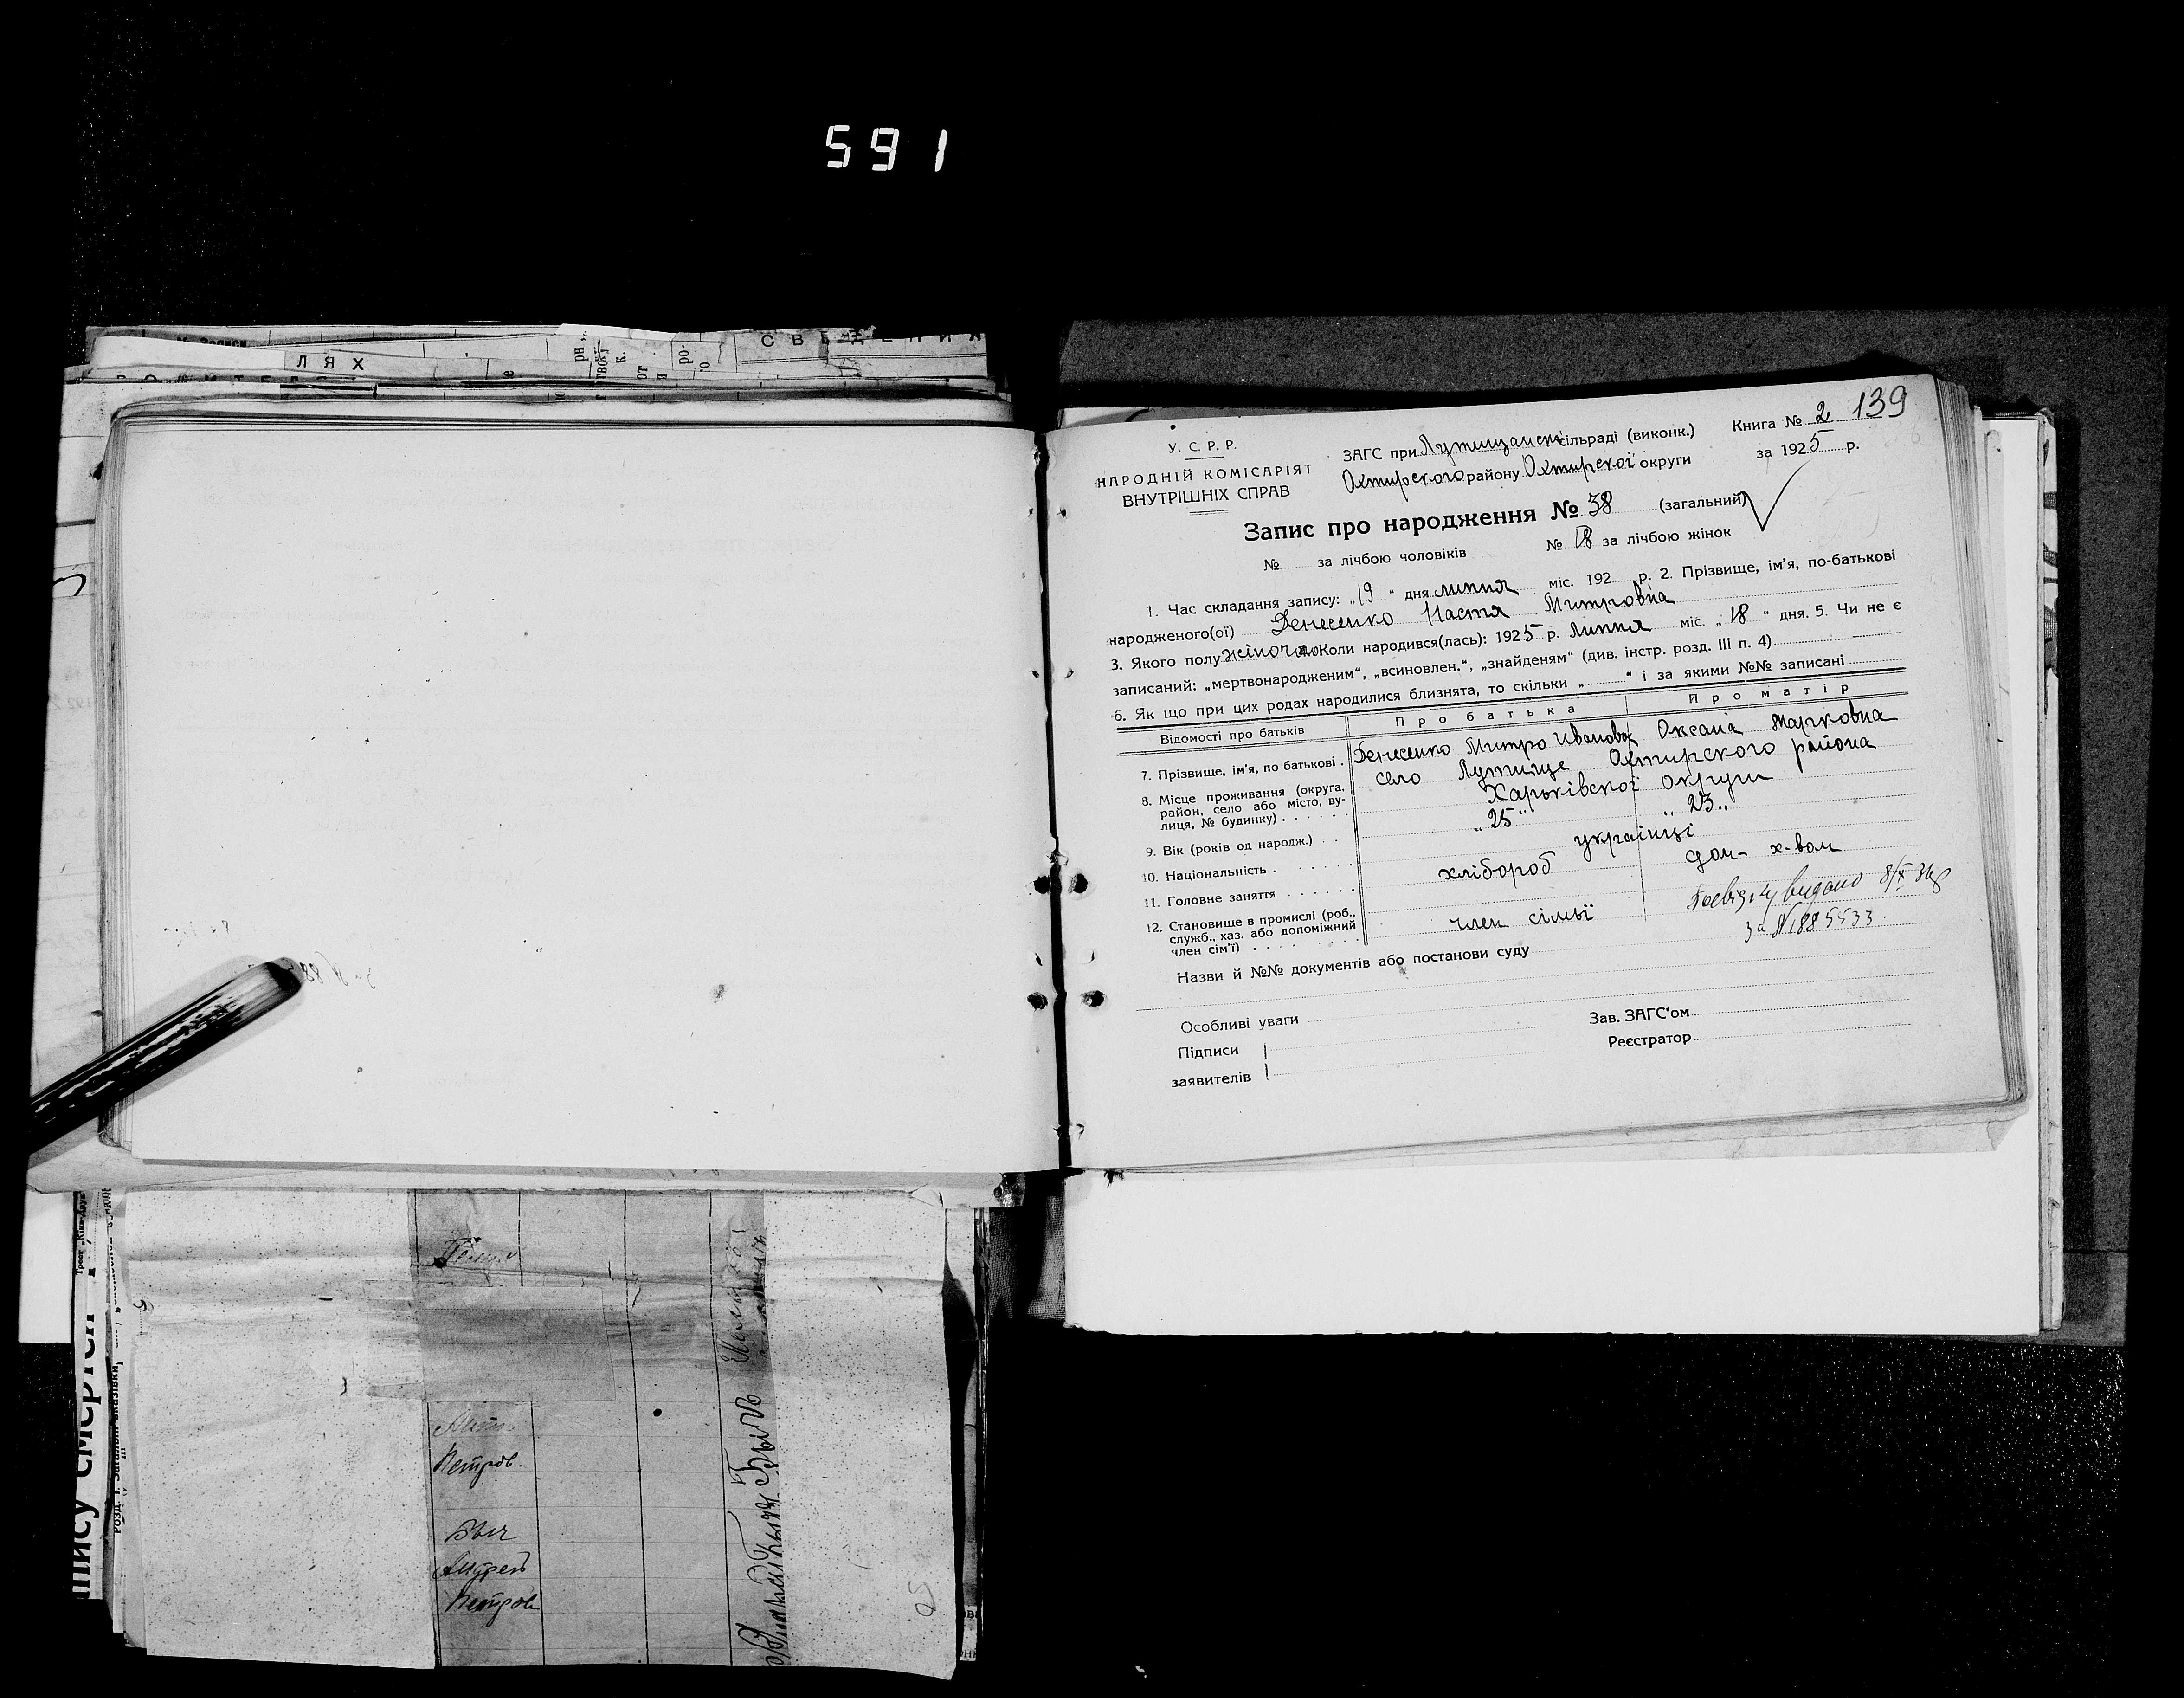 591
СВЕДЕНИЯ
ЛЯХ
139
Книга № 2
за 1925 р.
У. С. Р. Р.
НАРОДНІЙ КОМІСАРІЯТ
ВНУТРІШНІХ СПРАВ
ЗАГС при Лутищанскі сільраді (виконк.)
Охтирского району Охтирскої округи
Запис про народження № 38 (загальний)
№ за лічбою чоловіків № 18 за лічбою жінок
1. Час складання запису: „19“ дня липня міс. 192 р. 2. Прізвище, ім'я, по-батькові
народженого(ої) Денесенко Настя Митровна
3. Якого полу жіночого Коли народився(лась): 1925 р. Липня міс. „18“ дня. 5. Чи не є
записаний: „мертвонародженим“, „всиновлен.“, „знайденям“ (див. інстр. розд. III п. 4)
6. Як що при цих родах народилися близнята, то скільки „ “ і за якими №№ записані
Відомості про батьків Про батька Про матір
7. Прізвище, ім'я, по батькові . Денесенко Митро Иванов Оксана Марковна
8. Місце проживання (округа, район, село або місто, вулиця, № будинку) село Лутище Охтирского района
Харьківскої округи
9. Вік (років од народж.) „25“ „23„
10. Національність украінці
11. Головне заняття хлібороб дом- х-вом
12. Становище в промислі (роб., служб., хаз. або допоміжний член сім'ї) член сімьї
видано 8/X 36р
за №1885533.
Назви й №№ документів або постанови суду
Особливі уваги
Підписи
заявителів
Зав. ЗАГС'ом
Реєстратор
Петров.
Быч
Андрей
Петров